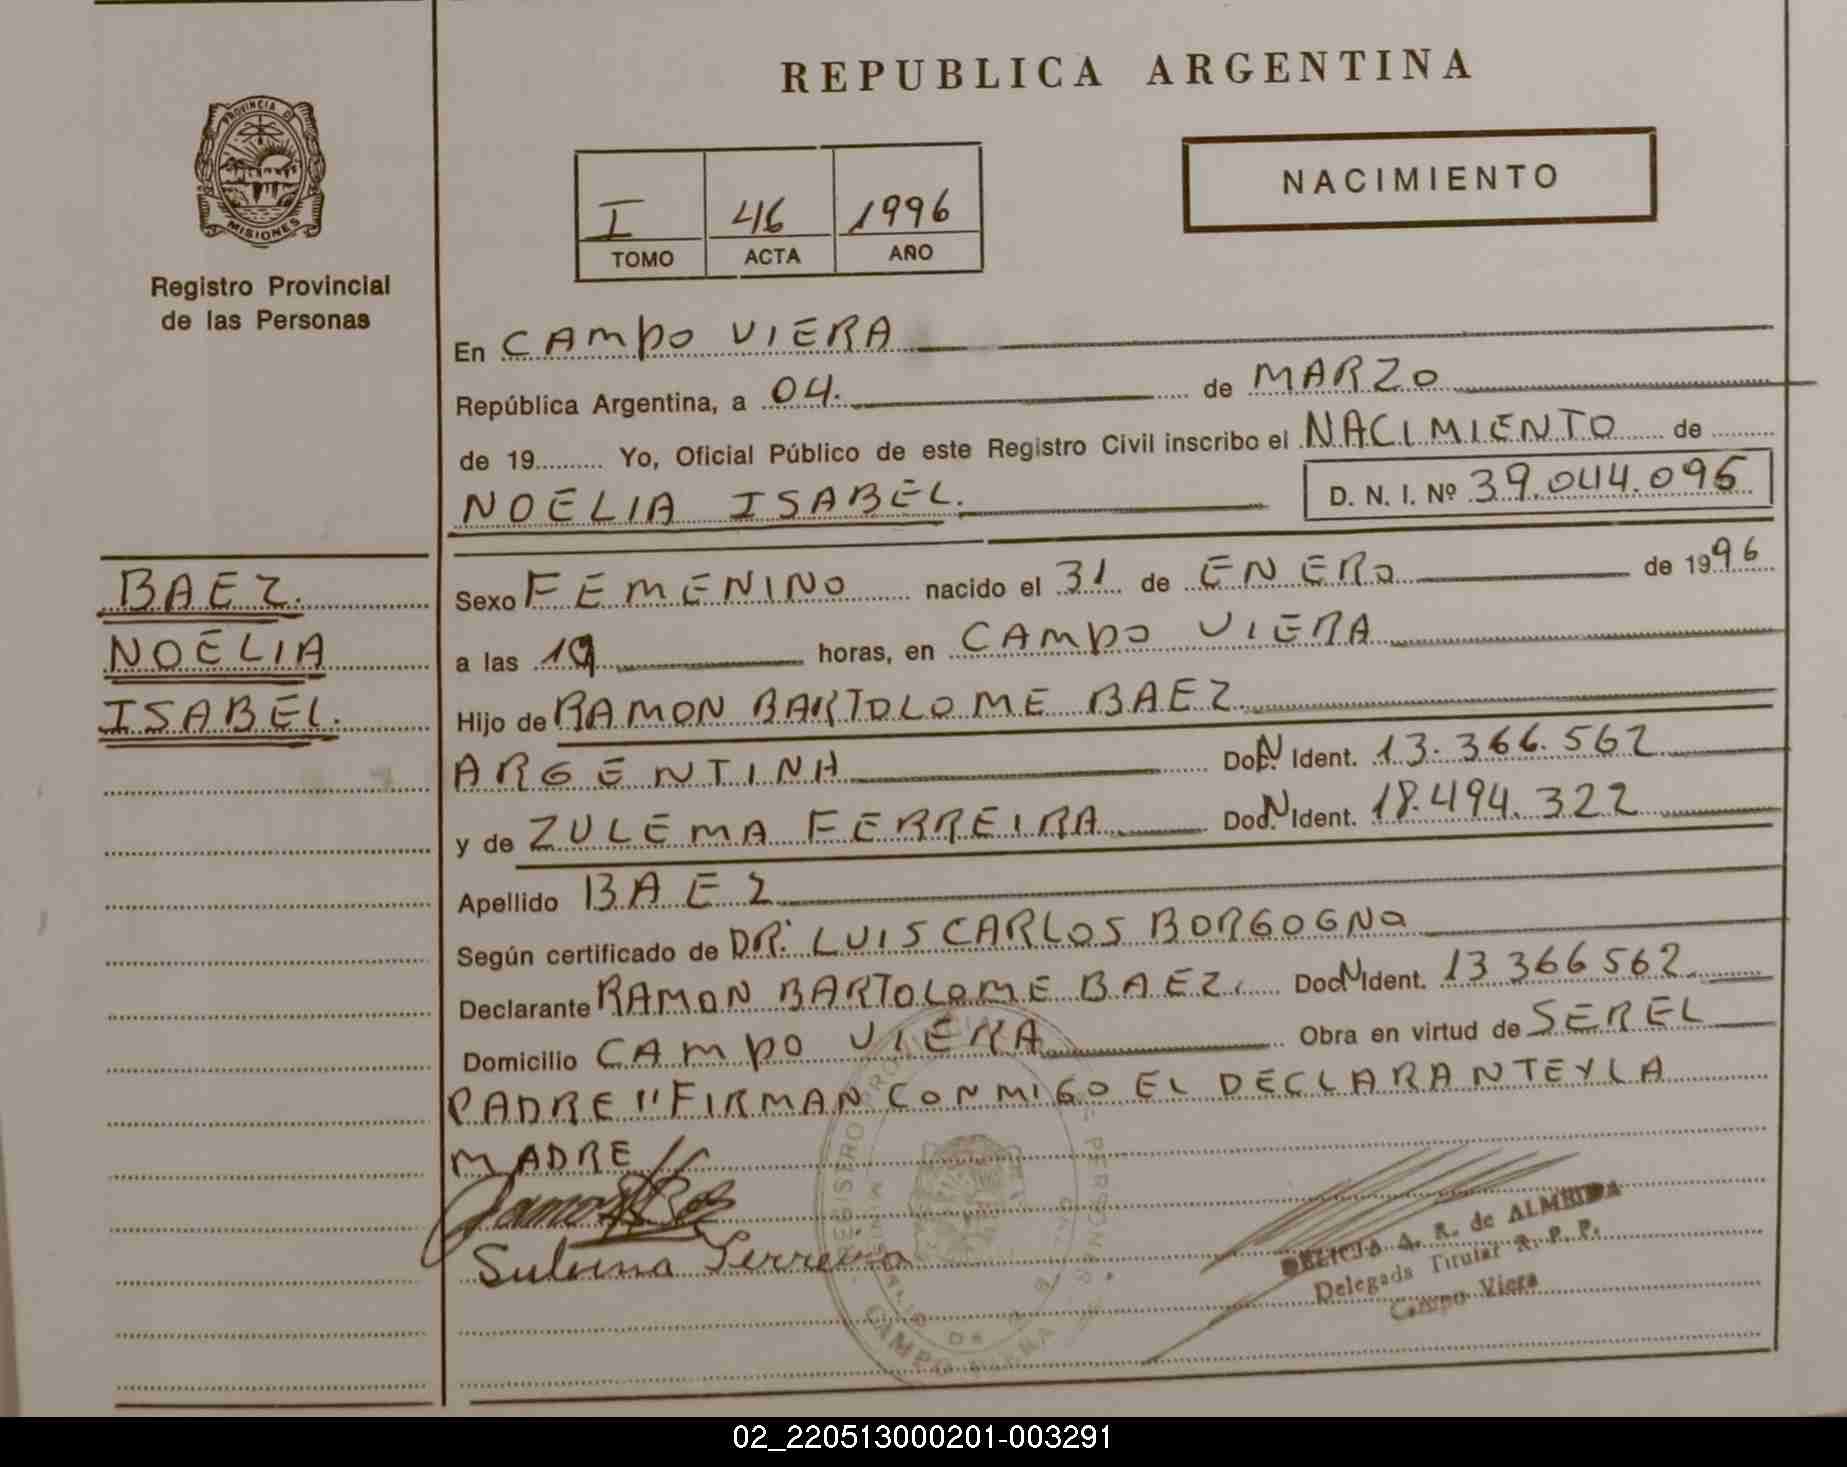 REPUBLICA ARGENTINA
PROVINCIA D
MISIONES
Registro Provincial
de las Personas
NACIMIENTO
I 46 1996
TOMO ACTA AÑO
En CAMPO VIERA
República Argentina, a 04. de MARZO
de 19 Yo, Oficial Público de este Registro Civil inscribo el NACIMIENTO de
NOELIA ISABEL. D. N. I. Nº 39.044.096
BAEZ.
NOELIA
ISABEL.
Sexo FEMENINO nacido el 31 de ENERO de 1996
a las 19 horas, en CAMPO VIERA
Hijo de RAMON BARTOLOME BAEZ
ARGENTINA Doc. N Ident. 13.366.562
y de ZULEMA FERREIRA Doc. N Ident. 18.494.322
Apellido BAEZ
Según certificado de DR. LUIS CARLOS BORGOGNO
Declarante RAMON BARTOLOME BAEZ. Doc N Ident. 13 366 562
Domicilio CAMPO VIERA Obra en virtud de SER EL
PADRE "FIRMAN CONMIGO EL DECLARANTE Y LA
MADRE//
Ferreira
A. R. de ALMEIDA
Delegada Titular R. P. P.
Campo Viera
02_220513000201-003291